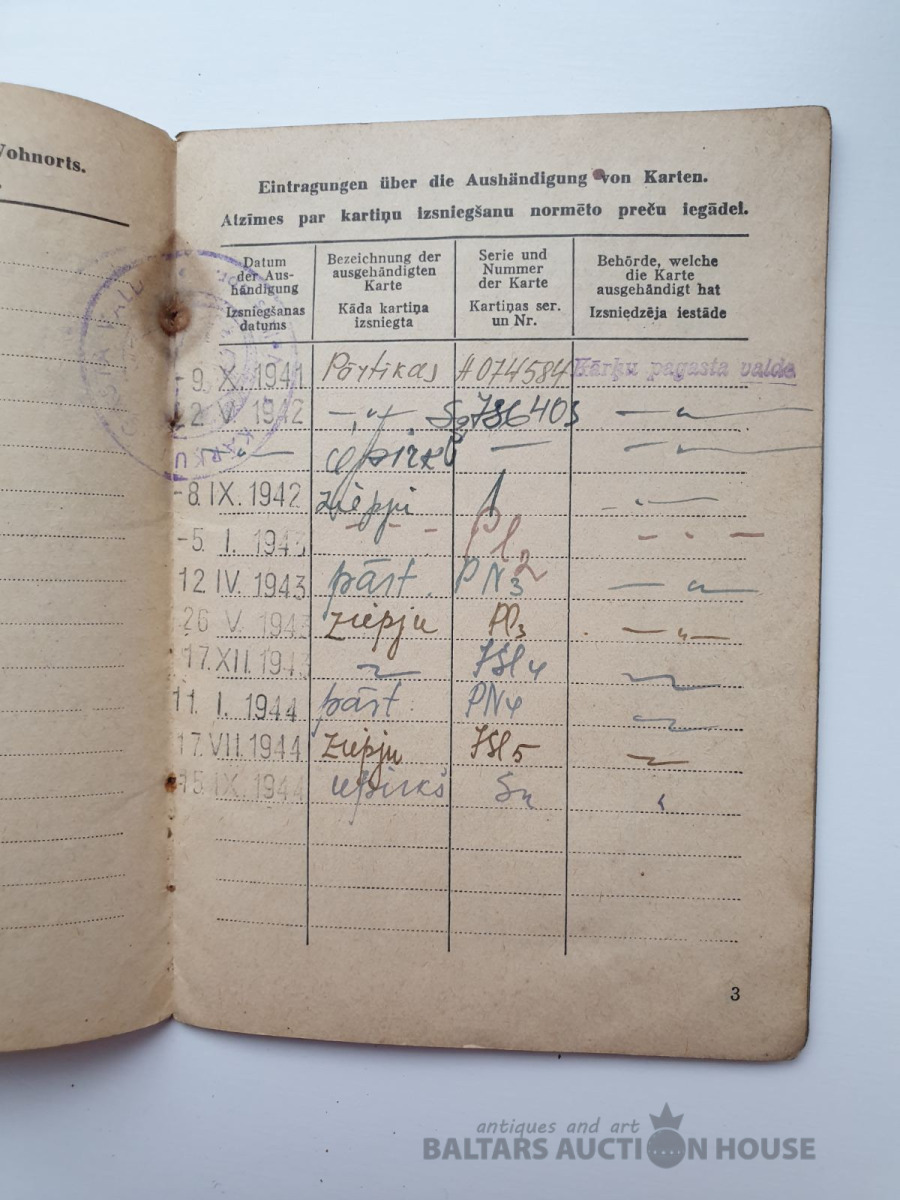 Wohnorts.
Eintragungen über die Aushändigung von Karten.
Atzīmes par kartiņu izsniegšanu normēto preču iegādei.
Datum der Aushändigung
Izsniegšanas datums
Bezeichnung der ausgehändigten Karte
Kāda kartiņa izsniegta
Serie und Nummer der Karte
Kartiņas ser. un Nr.
Behörde, welche die Karte ausgehändigt hat
Izsniedzēja iestāde
-9. X. 1941 Pārtikas A 074584 Ķārķu pagasta valde
2. V. 1942 — „ —
— „ — iepirkš —
-8. IX. 1942 ziepju
-5. I. 1943 - - - Pl2
12. IV. 1943 pārt. PN3
26 V. 1943 ziepju Pl3
17. XII. 1943
11. I. 1944 pārt. PN4
17. VII. 1944 ziepju
15. IX. 1944 iepirkš
3
antiques and art
BALTARS AUCTION HOUSE